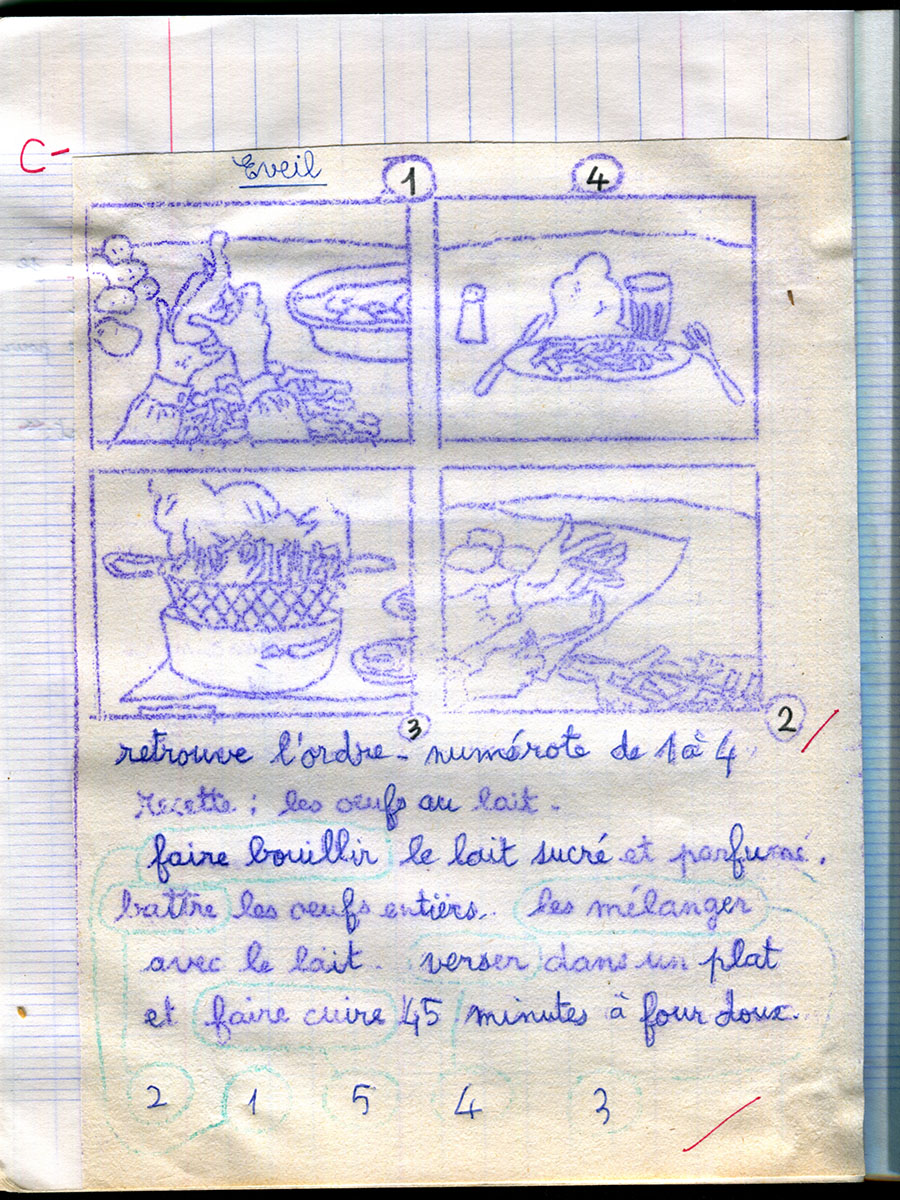 C-
Eveil
1
4
3
2
retrouve l'ordre - numérote de 1 à 4
recette : les oeufs au lait.
faire bouillir le lait sucré et parfumé.
battre les oeufs entiers. les mélanger
avec le lait. verser dans un plat
et faire cuire 45 minutes à four doux.
2 1 5 4 3